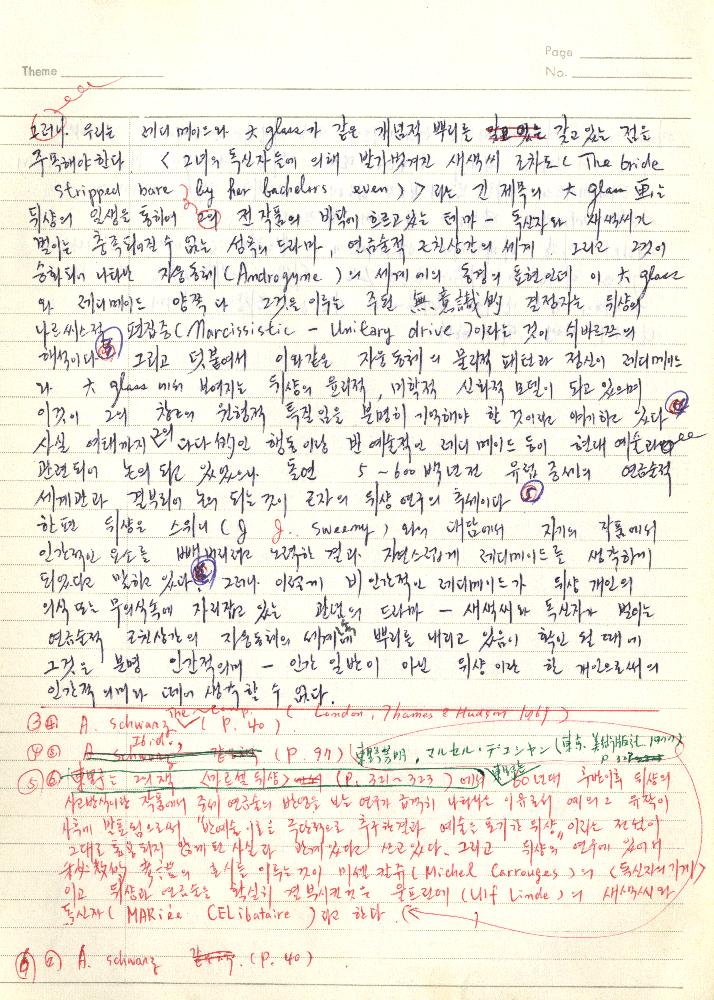 Page
Theme
No.
그러나. 우리는 레디메이드와 大glass가 같은 개념적 뿌리를 갖고 있는 점을
주목해야 한다 〈그녀의 독신자들에 의해 발가벗겨진 새색씨 조차도(The bride
stripped bare by her bachelors even)〉라는 긴 제목의 大glass 画는
뒤샹의 일생을 통하여 그의 전 작품의 바닥에 흐르고 있는 테마 - 독신자와 새색씨가
벌이는 충족되어질 수 없는 성욕의 드라마, 연금술적 근친상간의 세계. 그리고 그것이
승화되어 나타난 자웅동체(Androgyne)의 세계에의 동경의 표현인데 이 大glass
와 레디메이드 양쪽 다 그것을 이루는 주된 無意識的 결정자는 뒤샹의
나르씨스적 편집증(Narcissistic - Unitary drive)이라는 것이 쉬바르쯔의
해석이다 그리고 덧붙여서 이와같은 자웅동체의 물리적 패턴과 정신이 레디메이드
와 大glass에서 보여지는 뒤샹의 윤리적, 미학적 신화적 모델이 되고 있으며
이것이 그의 창조의 원형적 특질임을 분명히 기억해야 할 것이라고 얘기하고 있다 ④
사실 여태까지 그의 다다的인 행동이랑 반예술적인 레디메이드 등이 현대 예술과
관련되어 논의 되고 있었으나 돌연 5~600백년전 유럽 중세의 연금술적
세계관과 결부되어 논의 되는 것이 근자의 뒤샹 연구의 추세이다 ⑤
한편 뒤샹은 스위니(J. J. Sweeney)와의 대담에서 자기의 작품에서
인간적인 요소를 빼버리려고 노력한 결과 자연스럽게 레디메이드를 생각하게
되었다고 말하고 있다 그러나 이렇게 비인간적인 레디메이드가 뒤샹 개인의
의식 또는 무의식속에 자리잡고 있는 관념의 드라마 - 새색씨와 독신자가 벌이는
연금술적 근친상간의 자웅동체의 세계에 뿌리를 내리고 있음이 확인 될 때에
그것을 분명 인간적 의미 - 인간 일반이 아닌 뒤샹이란 한 개인으로써의
인간적 의미와 떼어 생각할 수 없다.
③ A. schwarz The Comp. (P. 40) (London, Thames & Hudson 1969)
④ Ibid, (P. 97) (東野芳明, マルセル・デュシャン (東京, 美術出版社, 1977) P
⑤ 東野는 그의 책 〈마르셀 뒤샹〉 (P. 321~323)에서 60년대 후반이후 뒤샹의
사고방식이랑 작품에서 중세 연금술의 반영을 보는 연구가 급격히 나타나는 이유로서 예의 그 유작이
사후에 발표됨으로써 "반예술 이론을 극단적으로 추구한 결과 예술을 포기한 뒤샹"이라는 전설이
그대로 통용되지 않게 된 사실과 관계있다고 쓰고 있다. 그리고 뒤샹의 연구에 있어서
효시를 이루는 것이 미셸 칸쥬(Michel Carrouges)의 〈독신자의 기계〉
이고 뒤샹과 연금술을 확실히 결부시킨 것은 울프린데(Ulf Linde)의 새색씨와
독신자(MARiée CELibataire)라고 한다.
⑥ A. schwarz (P. 40)